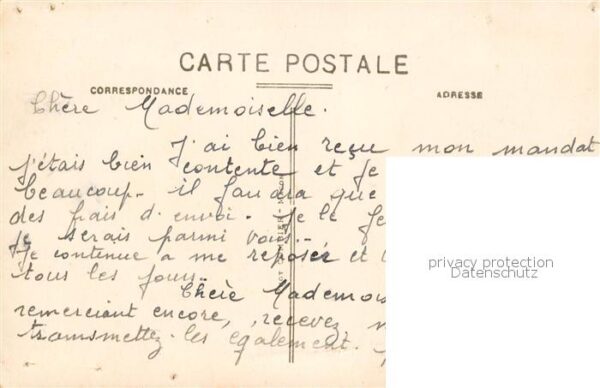 CARTE POSTALE
CORRESPONDANCE
ADRESSE
Chère Mademoiselle.
J'ai bien reçu mon mandat
j'étais bien contente et je
beaucoup. il faudra que
des frais d'envoi. je le
je serais parmi vous.
Je continue a me reposer et
tous les jours.
Chère
remerciant encore, recevez
transmettez-les egalement.
privacy protection
Datenschutz